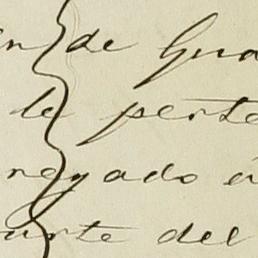 n de Gua
le perte
regado á
urte del